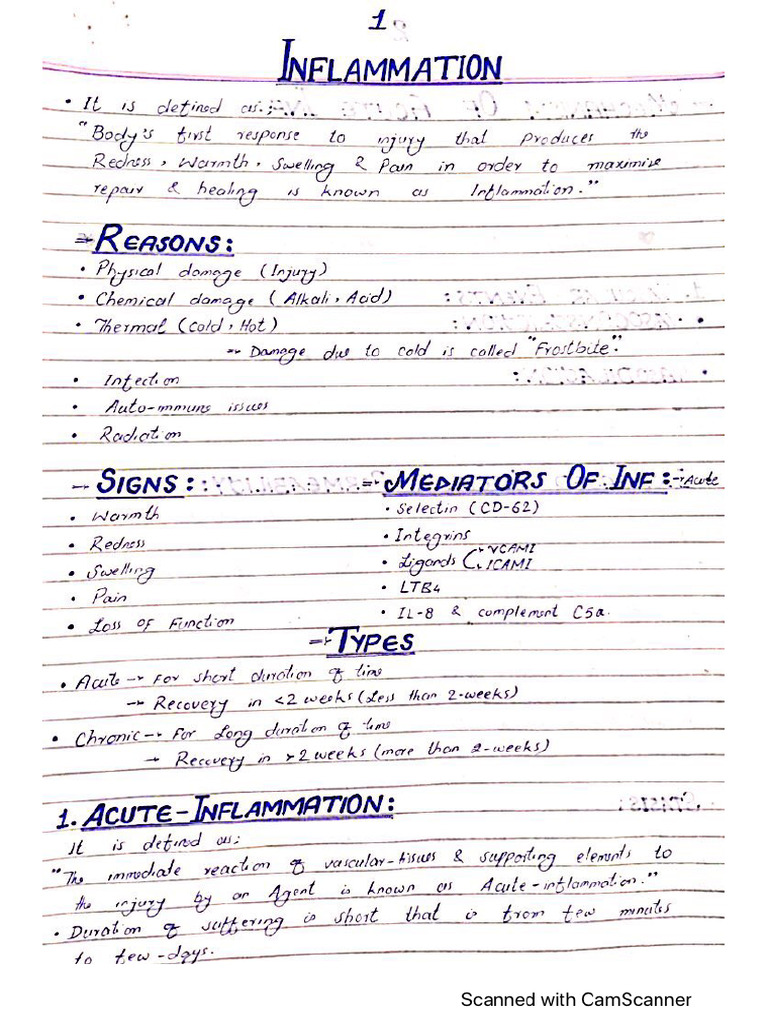 1
INFLAMMATION
• It is defined as:;
"Body's first response to injury that produces the
Redness, Warmth, Swelling & Pain in order to maximize
repair & healing is known as Inflammation."
→ REASONS:
• Physical damage (Injury)
• Chemical damage (Alkali, Acid)
• Thermal (Cold, Hot)
→ Damage due to cold is called "Frostbite".
• Infection
• Auto-immune issues
• Radiation
→ SIGNS:
• Warmth
• Redness
• Swelling
• Pain
• Loss of Function
→ MEDIATORS OF INF:- Acute
• Selectin (CD-62)
• Integrins
• Ligands → VCAMI
→ ICAMI
• LTB4
• IL-8 & complement C5a.
→ TYPES
• Acute → For short duration of time
→ Recovery in <2 weeks (Less than 2-weeks)
• Chronic → For Long duration of time
→ Recovery in >2 weeks (more than 2-weeks)
1. ACUTE-INFLAMMATION:
It is defined as:
"The immediate reaction of vascular-tissues & supporting elements to
the injury by an Agent is known as Acute-inflammation."
• Duration of suffering is short that is from few minutes
to few-days.
Scanned with CamScanner